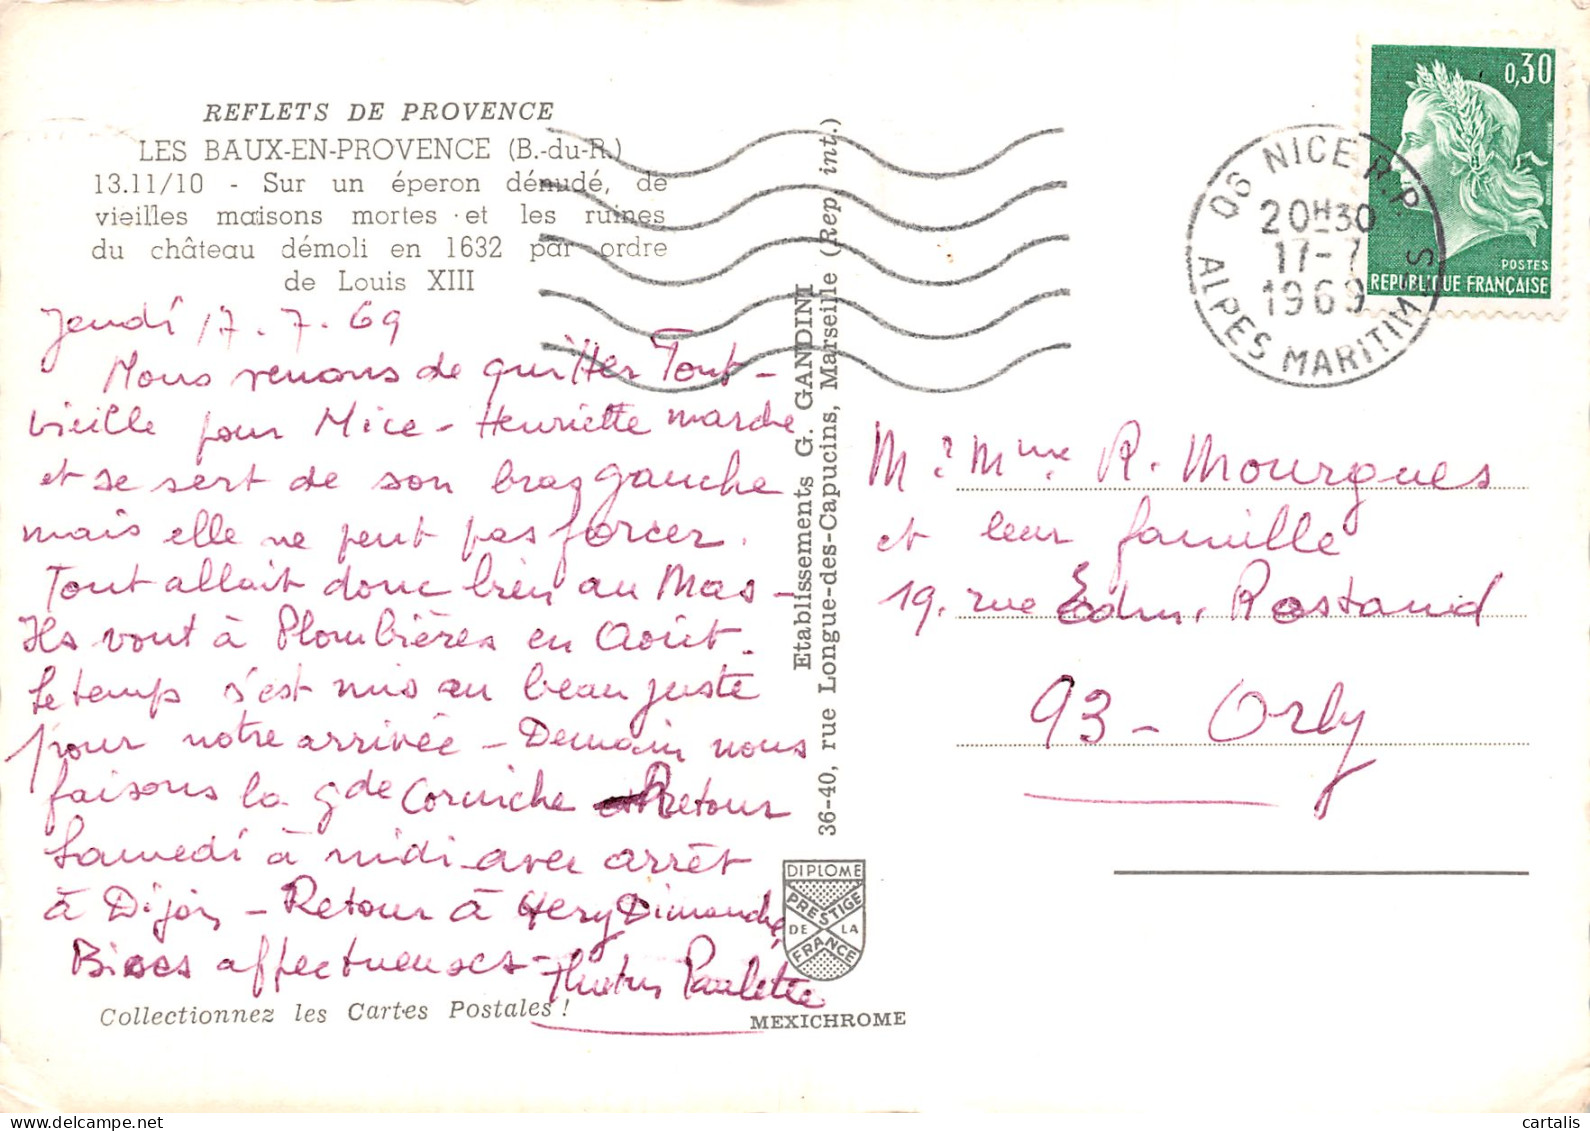 REFLETS DE PROVENCE
LES BAUX-EN-PROVENCE (B.-du-R.)
13.11/10 - Sur un éperon dénudé, de
vieilles maisons mortes et les ruines
du château démoli en 1632 par ordre
de Louis XIII
Jeudi 17.7.69
Nous venons de quitter Tout-
vieille pour Nice - Henriette marche
et se sert de son bras gauche
mais elle ne peut pas forcer.
Tout allait donc bien au Mas -
Ils vont à Plombières en Août.
Le temps s'est mis au beau juste
pour notre arrivée - Demain nous
faisons la gde Corniche Retour
Samedi à midi avec arrêt
à Dijon - Retour à Héry Dimanche
Bises affectueuses - Paulette
Collectionnez les Cartes Postales !
Etablissements G. GANDINI
36-40, rue Longue-des-Capucins, Marseille (Rep. int.)
DIPLOME
PRESTIGE
DE LA
FRANCE
MEXICHROME
0,30
POSTES
REPUBLIQUE FRANÇAISE
06 NICE R.P.
20H30
17-7
1969
ALPES MARITIMES
M. Mme R. Mourgues
et leur famille
19. rue Edm. Rostand
93 - Orly
cartalis
www.delcampe.net